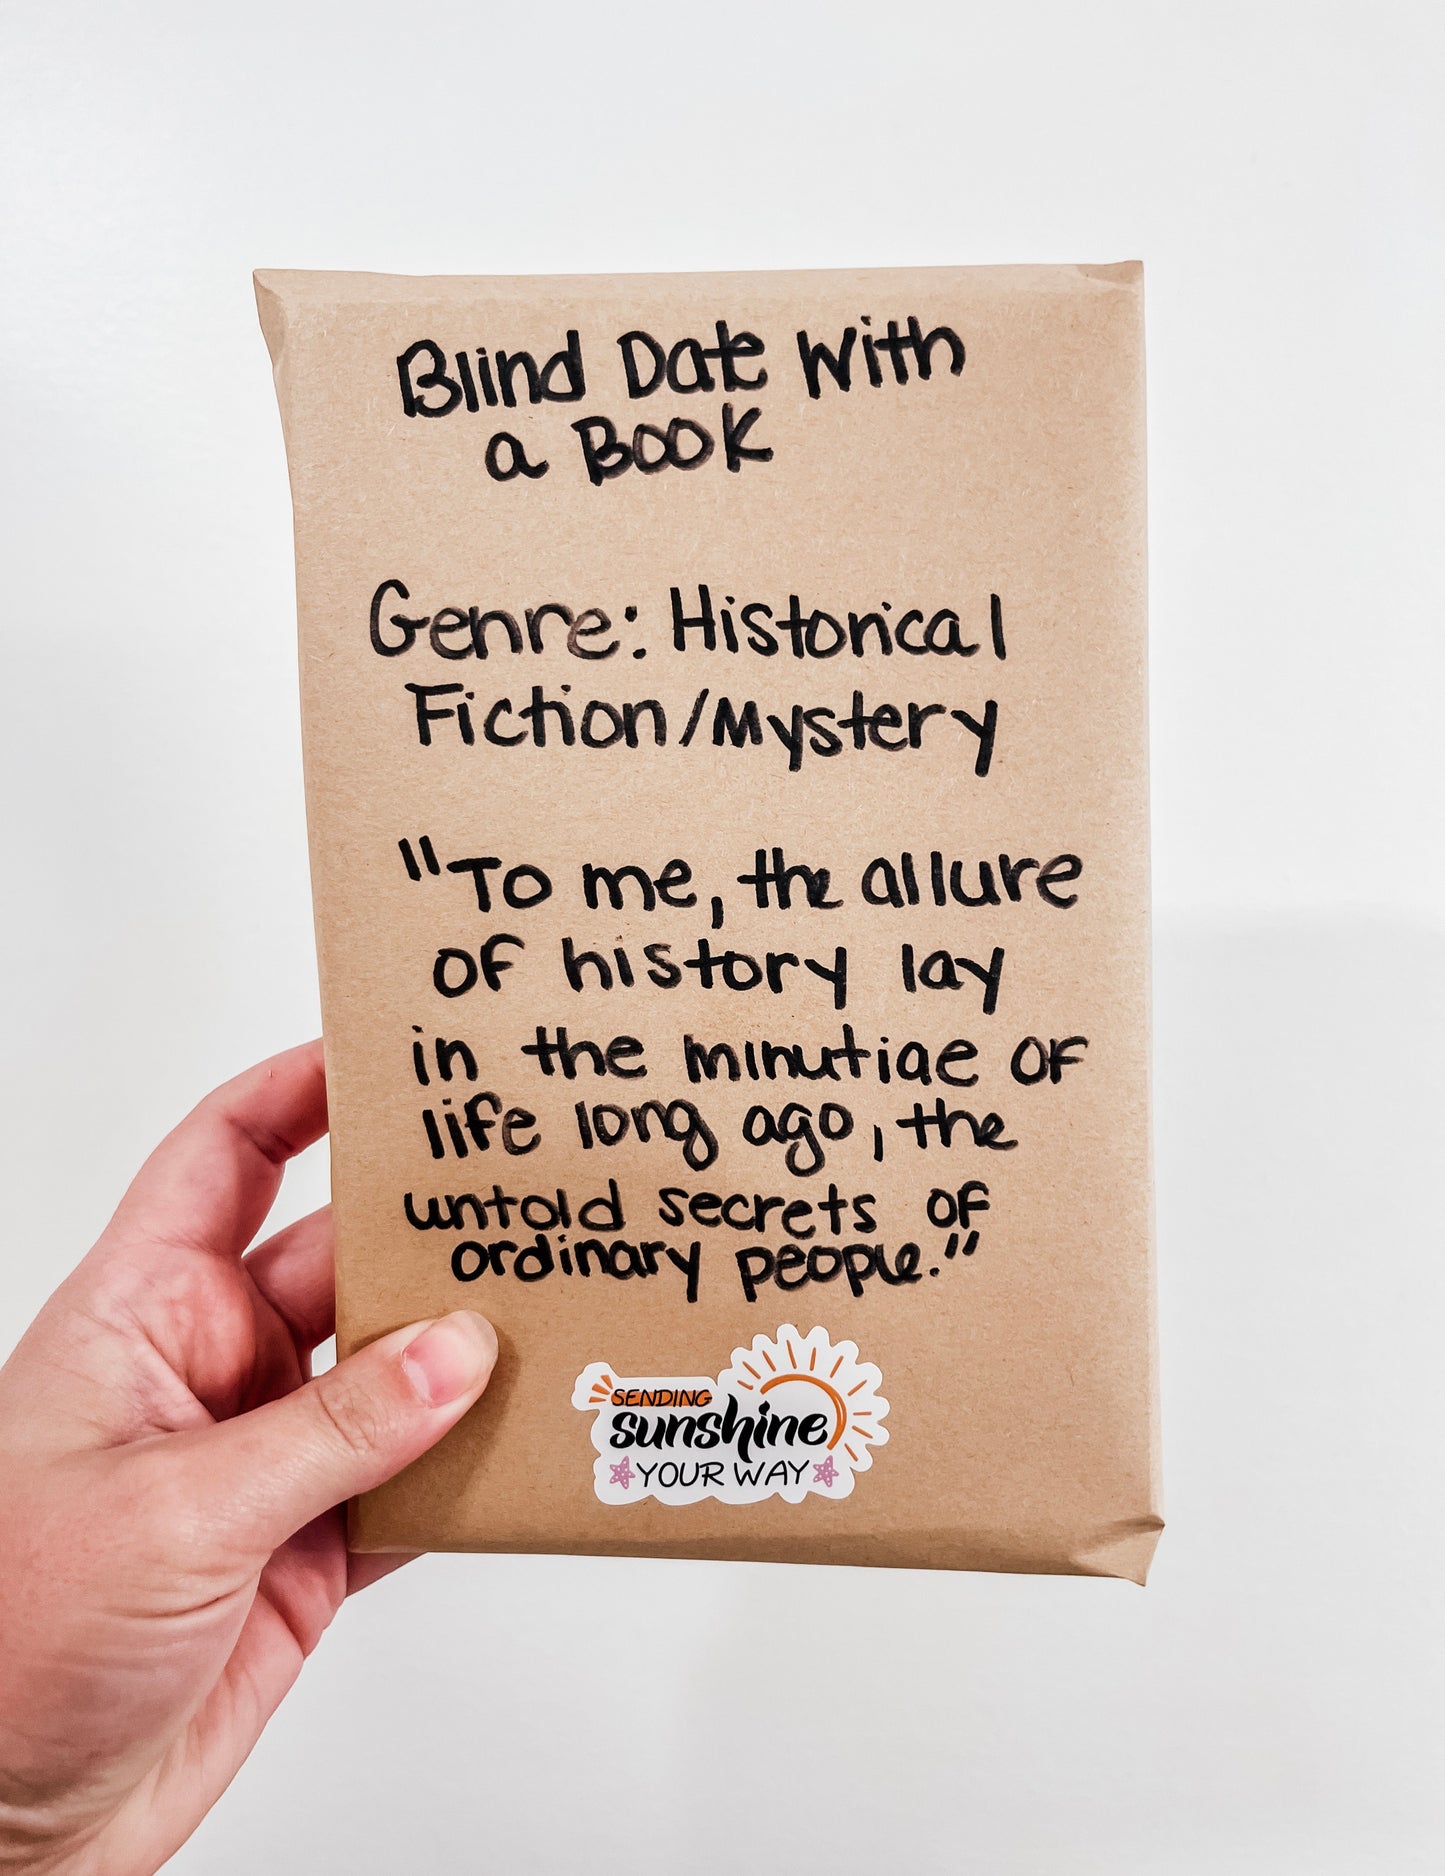 Blind Date With
a Book
Genre: Historical
Fiction/Mystery
"To me, the allure
of history lay
in the minutiae of
life long ago, the
untold secrets of
ordinary people."
SENDING
sunshine
YOUR WAY